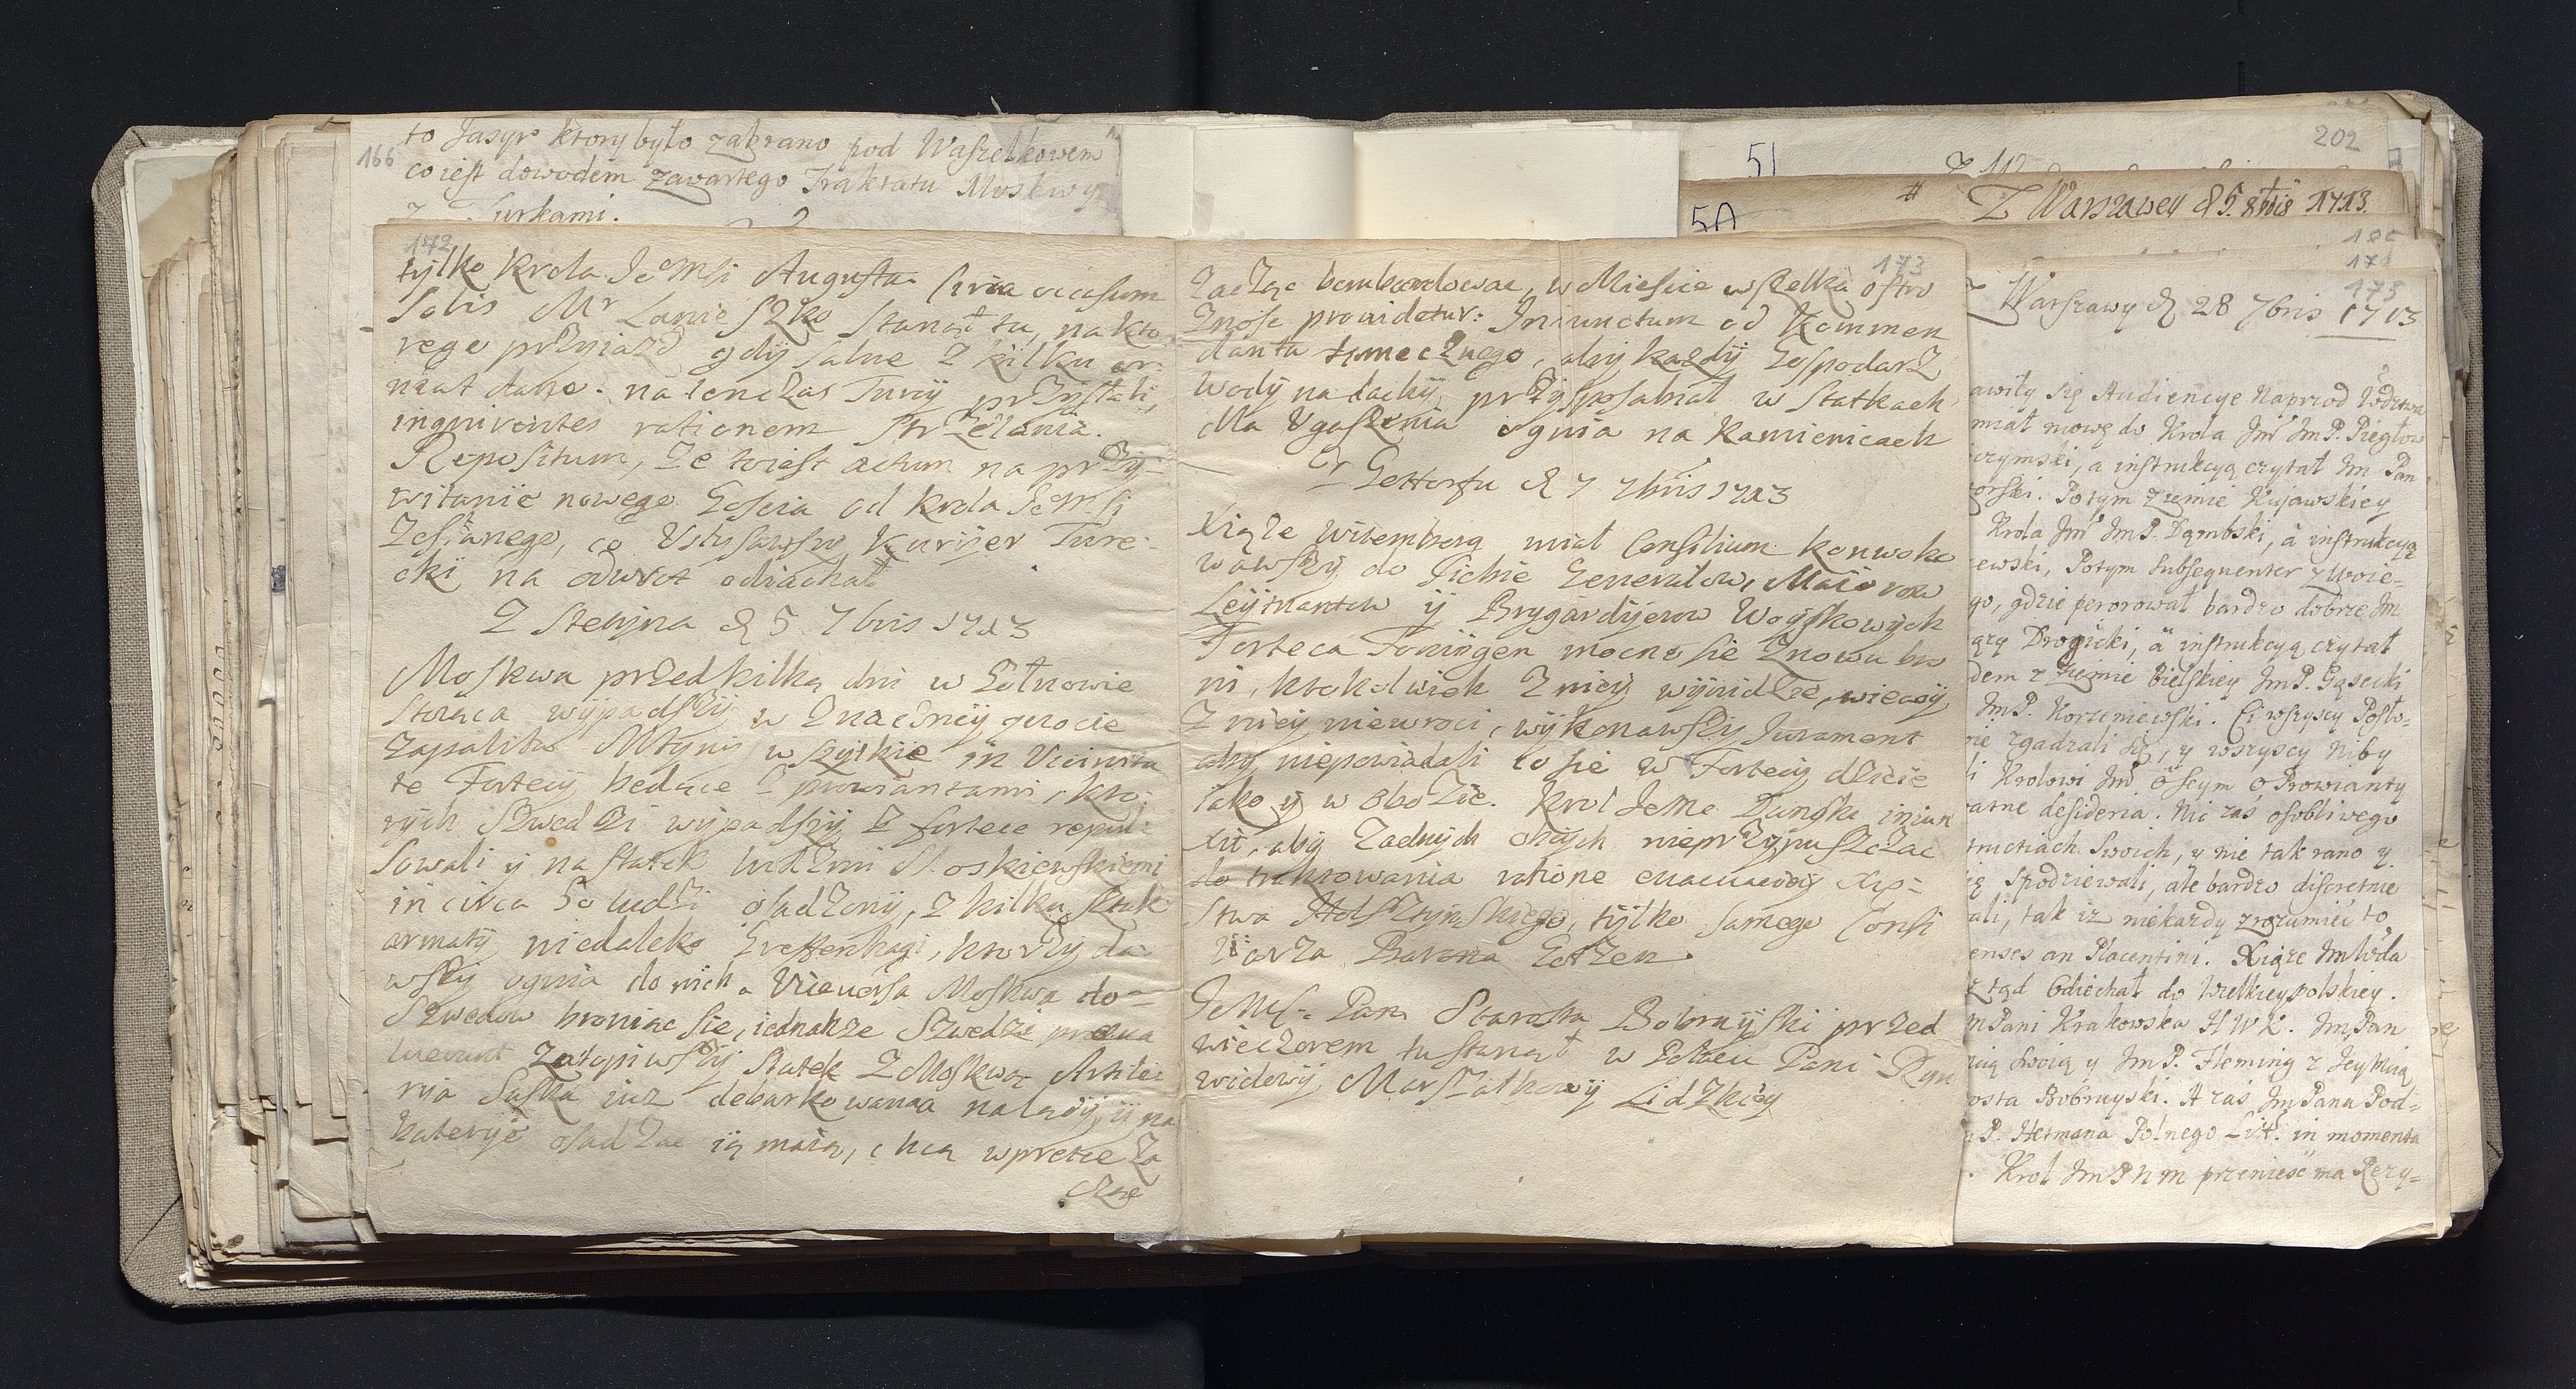 166
to Jasyr ktory było zabrano pod Waszelkowem
co iest dowodem zawartego Traktatu Moskwy
z Turkami.
172
tylko Krola Je Msci Augusta. Circa occasum
Solis Mr Lanieszko Stanął tu, na kto
rego przyiazd gdy salwe z kilku ar:
mat dano. na tenczas Turcy przysłali,
inquirentes rationem Strzelania.
Repositum, że to iest actum na przy:
witanie nowego Goscia od Krola Je Msci
Zesłanego, co Vslyszawszy Kuryer Ture:
cki na odwrot odiachał
Z Stetyna d 5 7bris 1713
Moskwa przed kilką dni w Gołnowie
Stoiąca wypadszy w Znaczney quocie
Zapalila Młyny wszytkie in Vicinita
te Fortecy bedące z prowiantami, kto:
rych Szwedzi wypadszy z fortece repul:
sowali y na statek ludzmi Moskiewskiemi
in circa 50 ludzi osadzony, z kilku sztuk
armaty niedaleko Greffenhagi, ktorzy da
wszy ognia do nich, Viceversa Moskwa do
Szwedow broniąc sie, iednakze Szwedzi praeva
luerunt Zatopiwszy Statek z Moskwą. Artile
rya Saska iuz debarkowana na lądzy, y na
Baterye osadzac ią maią, chcą wpretce Za
cząc
173
Zacząc bombardowac, w Miescie wszelka ostro
znosc providetur: Iniunctum od Kommen
danta tamecznego, aby kazdy Gospodarz
wody na dachy przysposabiał w Statkach
dla Vgaszenia ognia na Kamienicach
Gettorfu d 7 7bris 1713
Xiąże Witemberg miał Consilium konwoko
wawszy do Siebie Generałow, Maiorow
Leytnantow y Brygardyerow Woyskowych
Forteca Toningen mocno sie Znowu bro
ni, ktokolwiek z niey wynidzie, wiecey
z niey niewroci, wykonawszy Jurament
aby niepowiadali co sie w Fortecy dzieie
iako y w Obozie. Krol Je Mc Dunski iniun
xit, aby zadnych onych nieprzypuszczac
do traktowania ratione evacuacyey Xię:
stwa Holsztynskiego, tylko samego Consi
liarza Barona Gotzen.
Je Msc Pan Starosta Bobruyski przed
wieczorem tu stanął w Pałacu Pani Dyn
widowy Marszałkowy Lidzkiey
202
51
5A
# Z Warszawey d 5. 8bris 1713.
175
Z Warszawy d 28 7bris 1713
awiły się Audiencye Naprzod Wdztwa
miał mowę do Krola Jm Jm P. Piegłow
czymski, a instrukcyą czytał Jm Pan
orski. Potym z ziemie Kujawskiey
Krola Jm Jm P. Dąmbski, a instrukcyą
ewski, Potym subsequenter z Woie-
go, gdzie perorował bardzo dobrze Jm
ąrą Drogicki, a instrukcyą czytał
dem z ziemie Bielskiey Jm P. Gąsecki
Jm P. Korzeniewski. Ci wszyscy Posło-
nie zgadzali się, y wszyscy niby
i Krolowi Jm o Seym o Prowianty
atne desideria. Nic zaś osobliwego
tructiach Swoich, y nie tak rano y
ię spodziewali, ale bardzo discretnie
ali, tak iz niekazdy zrozumieć to
enses an Placentini. Xiąze Jm Wda
ztąd Odiechał do Wielkieypolskiey.
m Pani Krakowska H W K. Jm Pan
nią Swoią y Jm P. Fleming z Jeymcią
osta Bobruyski. A zaś Jm Pana Pod-
P. Hetmana Polnego Lit. in momenta
Krol Jm P n M przenieść ma Rezy-